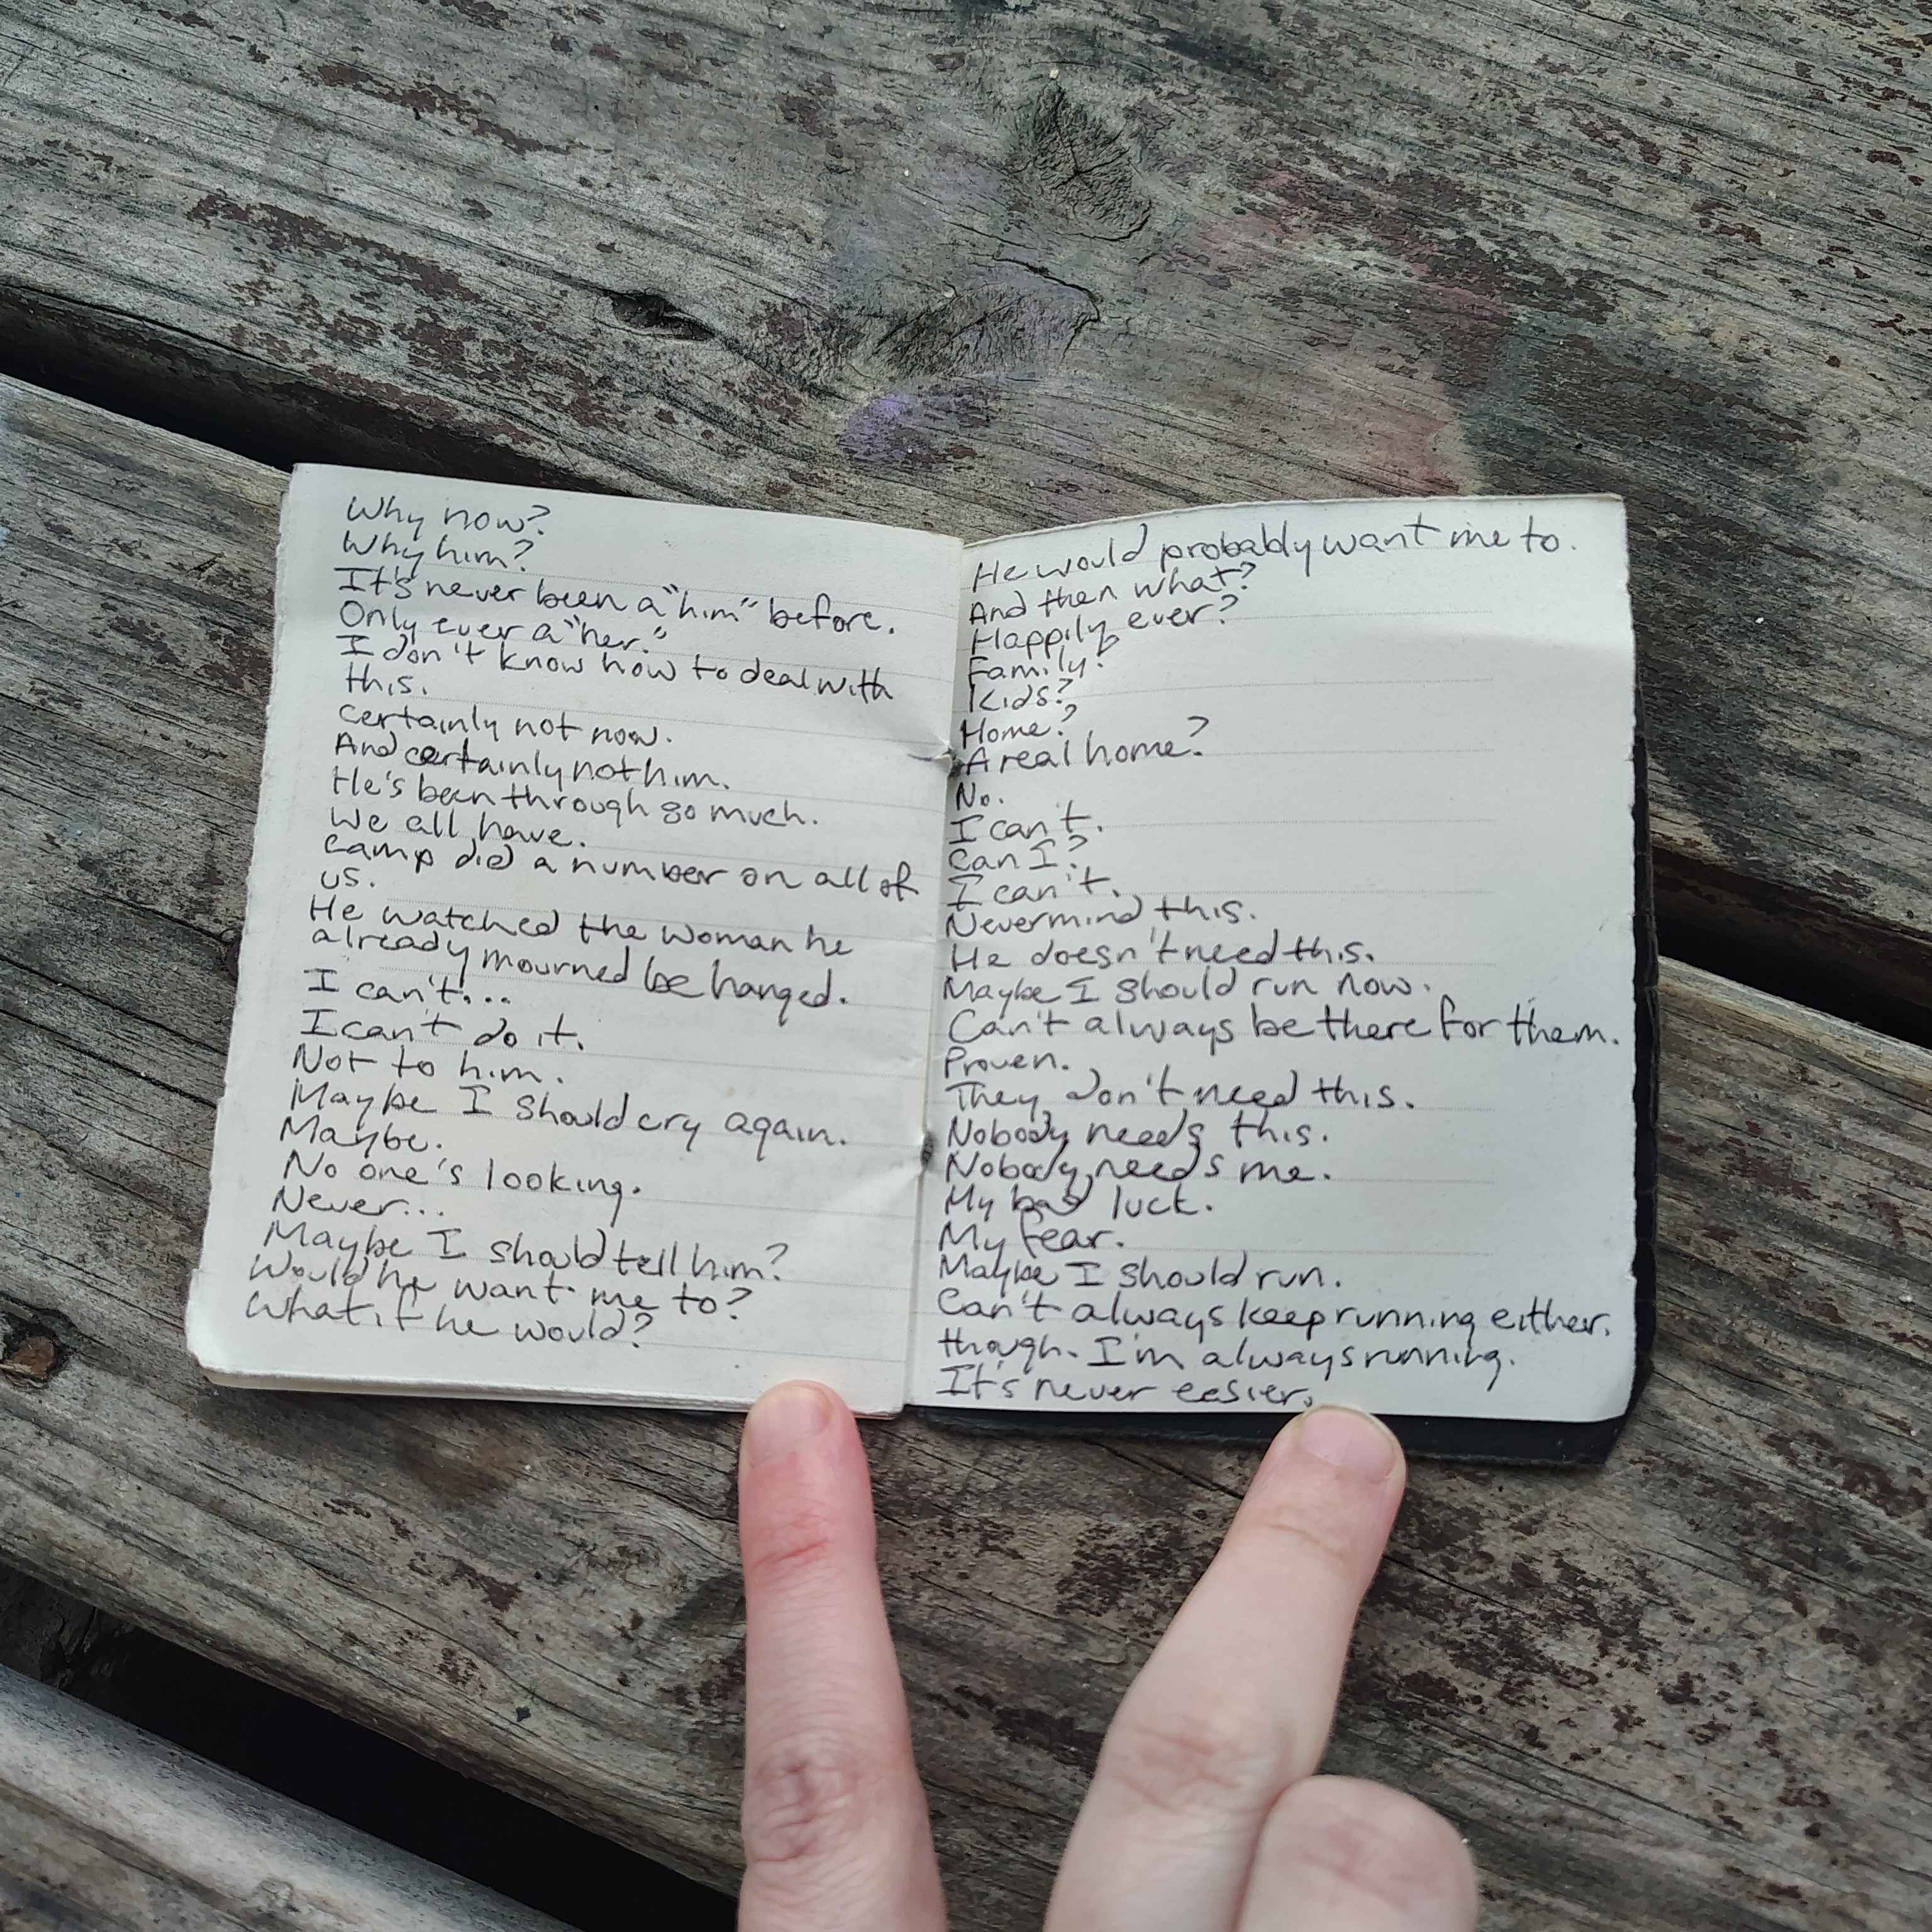 Why now?
Why him?
It's never been a "him" before.
Only ever a "her."
I don't know how to deal with
this.
Certainly not now.
And certainly not him.
He's been through so much.
We all have.
Camp did a number on all of
us.
He watched the woman he
already mourned be hanged.
I can't...
I can't do it.
Not to him.
Maybe I should cry again.
Maybe.
No one's looking.
Never...
Maybe I should tell him?
Would he want me to?
What if he would?
He would probably want me to.
And then what?
Happily ever?
Family?
Kids?
Home?
A real home?
No.
I can't.
Can I?
I can't.
Nevermind this.
He doesn't need this.
Maybe I should run now.
Can't always be there for them.
Proven.
They don't need this.
Nobody needs this.
Nobody needs me.
My bad luck.
My fear.
Maybe I should run.
Can't always keep running either.
though. I'm always running.
It's never easier.